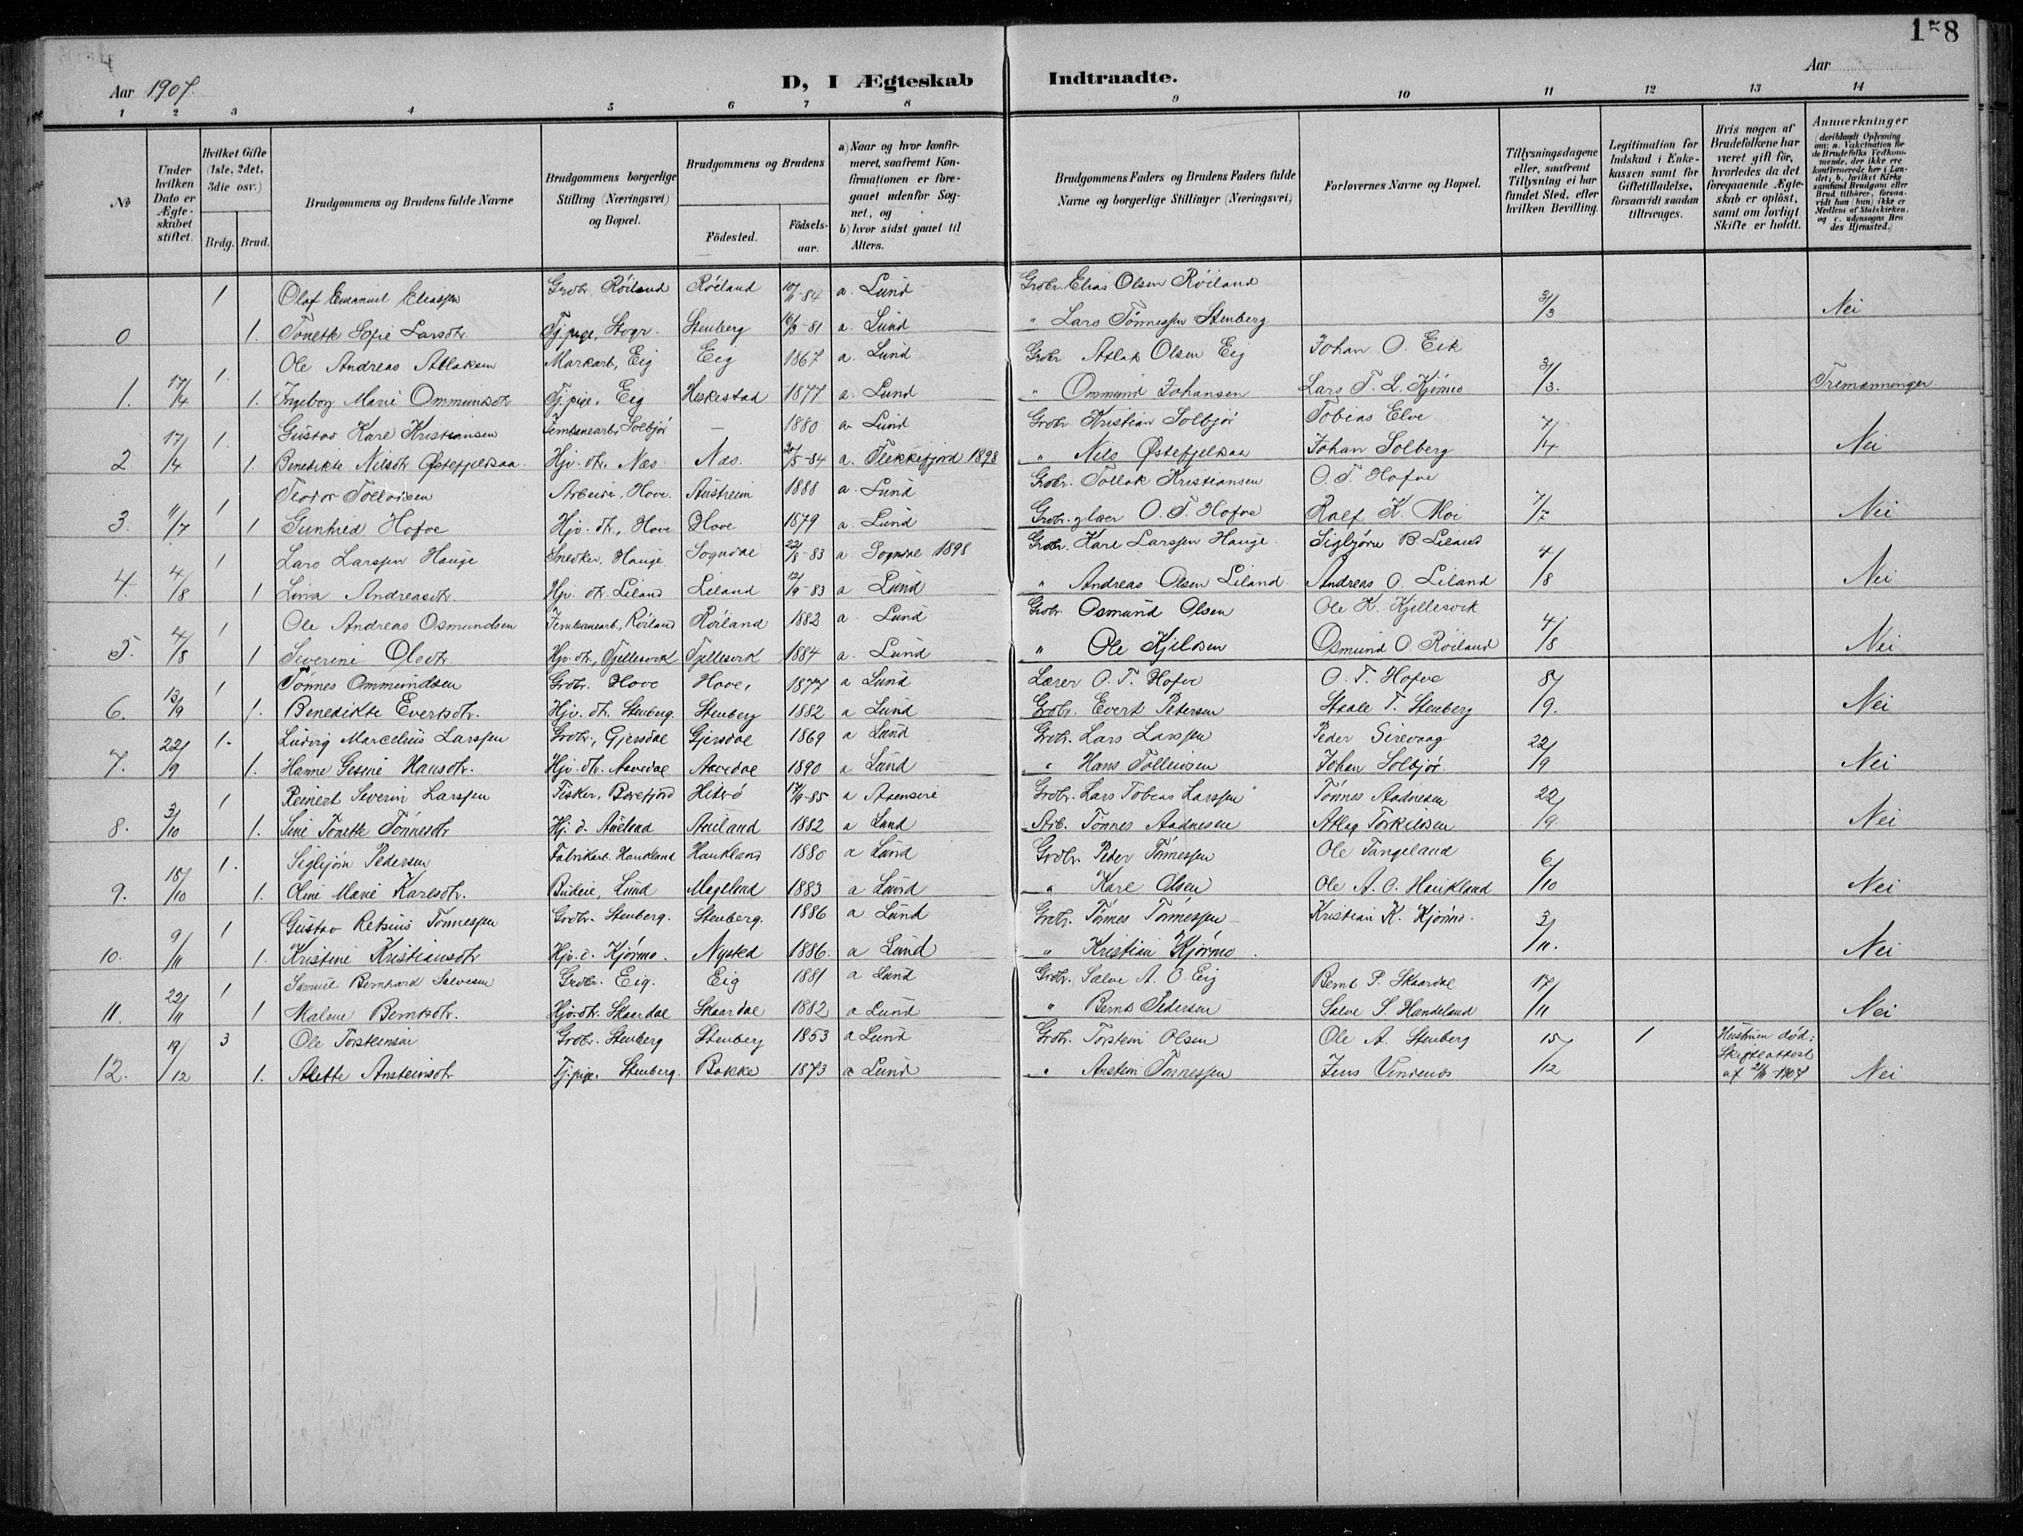 158
Aar 1907
D, I Ægteskab Indtraadte.
Aar
1 2 3 4 5 6 7 8 9 10 11 12 13 14
No
Under hvilken Dato er Ægteskabet stiftet.
Hvilket Gifte (1ste, 2det, 3die osv.)
Brdg. Brud.
Brudgommens og Brudens fulde Navne
Brudgommens borgerlige Stilling (Næringsvei) og Bopæl.
Brudgommens og Brudens
Fødested. Fødselsaar.
a) Naar og hvor konfirmeret, saafremt Konfirmationen er foregaaet udenfor Sognet, og
b) hvor sidst gaaet til Alters.
Brudgommens Faders og Brudens Faders fulde Navne og borgerlige Stillinger (Næringsvei)
Forlovernes Navne og Bopæl.
Tillysningsdagene eller, saafremt Tillysning ei har fundet Sted, efter hvilken Bevilling.
Legitimation for Indskud i Enkekassen samt for Giftetilladelse, forsaavidt saadan tiltrenges.
Hvis nogen af Brudefolkene har været gift før, hvorledes da det foregaaende Ægteskab er opløst, samt om lovligt Skifte er holdt.
Anmærkninger (deriblandt Oplysning om: a. Vakcination for de Brudefolks Vedkommende, der ikke ere konfirmerede her i Landet; b, hvilket Kirkesamfund Brudgom eller Brud tilhører, forsaavidt han (hun) ikke er Medlem af Statskirken, og c. udensogns Brudes Hjemsted.)
1 Olaf Emanuel Eliassen Grdbr. Røiland Røiland 10/11-84 a. Lund Grdbr. Elias Olsen Røiland
0 1. Tonette Sofie Larsdtr. Tj.pige, Stbgr. Stenberg 16/3-81 a. Lund " Lars Tønnessen Stenberg 3/3 Nei
1. Ole Andreas Atlaksen Markarb, Eig Eig 1867 a. Lund Grdbr Atlak Olsen Eig Johan O. Eik
1. 17/4 1. Ingeborg Marie Ommundsdtr Tj.pige, Eig Heskestad 1877 a. Lund " Ommund Johansen Lars T. L. Kjørmo 3/3. Tremenninger
1. Gustav Karl Kristiansen Jernbanearb. Solbjør – 1880 a. Lund Grdbr Kristian Solbjør Tobias Elve
2 17/4 1. Benedikte Nilsdtr Østefjelsaa. Hjv. dtr. Næs. Næs. 30/5-84 a. Flekkefjord 1898 " Nils Østefjelsaa Johan Solberg 7/4 Nei
1 Teodor Tollaksen Arbeider, Hove. Austreim 1888 a. Lund Grdbr. Tollak Kristiansen O. T. Hofve
3. 11/7 1 Gunhild Hofve Hjv. dtr., Hove Hove 1879 a. Lund Grdbr. glær O. T. Hofve Ralf K. Moi 7/7 Nei
1 Lars Larssen Hauge Snedker, Hauge Sogndal 22/8-83 a. Sogndal 1898 Grdbr. Karl Larssen Hauge. Sigbjørn B. Liland
4. 4/8 1 Lina Andreasdtr. Hjv. dtr. Liland Liland 12/9-83 a Lund " Andreas Olsen Liland Andreas O. Liland 4/8 Nei
1 Ole Andreas Osmundsen Jernbanearb, Røiland Røiland 1882 a. Lund Grdbr. Osmund Olsen Ole K. Kjellesvik
5. 4/8 1 Severine Olsdtr. Hjv. dtr., Fjellesvik Fjellesvik 1884 a. Lund " Ole Kjeldsen Osmund O. Røiland 4/8 Nei
1 Tønnes Ommundsen Grdbr. Hove Hove, 1877 a Lund Lærer O. T. Hofve O. T. Hofve
6. 13/9 1. Benedikte Evertsdtr. Hjv. dtr. Stenberg. Stenberg 1882 a Lund Grdbr. Evert Petersen Staale T. Stenberg 8/9. Nei
1. Ludvig Marcelius Larssen Grdbr., Gjersdal Gjersdal 1869 a Lund Grdbr. Lars Larssen Peder Sirevaag
7. 22/9 1. Hanne Gesine Hansdtr. Hjv. dtr. Aavedal Aavedal 1890 a Lund " Hans Tolleivsen Johan Solbjør. 22/9 Nei
1 Reinert Severin Larssen Fisker, Borefjord Hiterø 17/9-85 a Aaensire Grdbr. Lars Tobias Larssen Tønnes Aadnesen
8. 3/10 1. Sine Tonette Tønnesdtr Hj. d. Aueland Aueland 1882 a Lund Arb. Tønnes Aadnesen Atlag Torkildsen 22/9. Nei
1. Sigbjørn Pedersen Fabrikarb. Haukland Haukland 1880 a Lund Grdbr. Peder Tønnessen Ole Tangeland
9. 18/10 1. Oline Marie Karlsdtr. Budeie, Lund Mageland 1883 a Lund " Karl Olsen Ole A. O. Haukland 6/10 Nei
1 Gustav Retsius Tønnessen Grdbr. Stenberg. Stenberg. 1886 a Lund Grdbr. Tønnes Tønnessen Kristian K. Kjørmo.
10. 9/11 1. Kristine Kristiansdtr Hjv. d. Kjørmo. Nysted 1886. a Lund " Kristian Kjørmo. 3/11. Nei
1 Samuel Bernhard Salvesen Grdbr. Eig. Eig 1881 a Lund Grdbr. Salve A. O. Eig Bernt P. Skaardal
11. 22/11 1 Malene Berntsdtr. Hjv.dtr. Skaardal Skaardal 1882 a Lund " Bernt Pedersen Salve S. Handeland 17/11 Nei
3 Ole Torsteinsen Grdbr. Stenberg Stenberg 1853 a Lund Grdbr. Torstein Olsen Ole A. Stenberg 1 Hustruen død.
12. 19/12 1. Alette Ansteinsdtr Tj.pige, Stenberg. Bakke 1873 a Lund " Anstein Tønnessen Jens Vindenes 15/12 Skifteattest af 21/11-1907 Nei